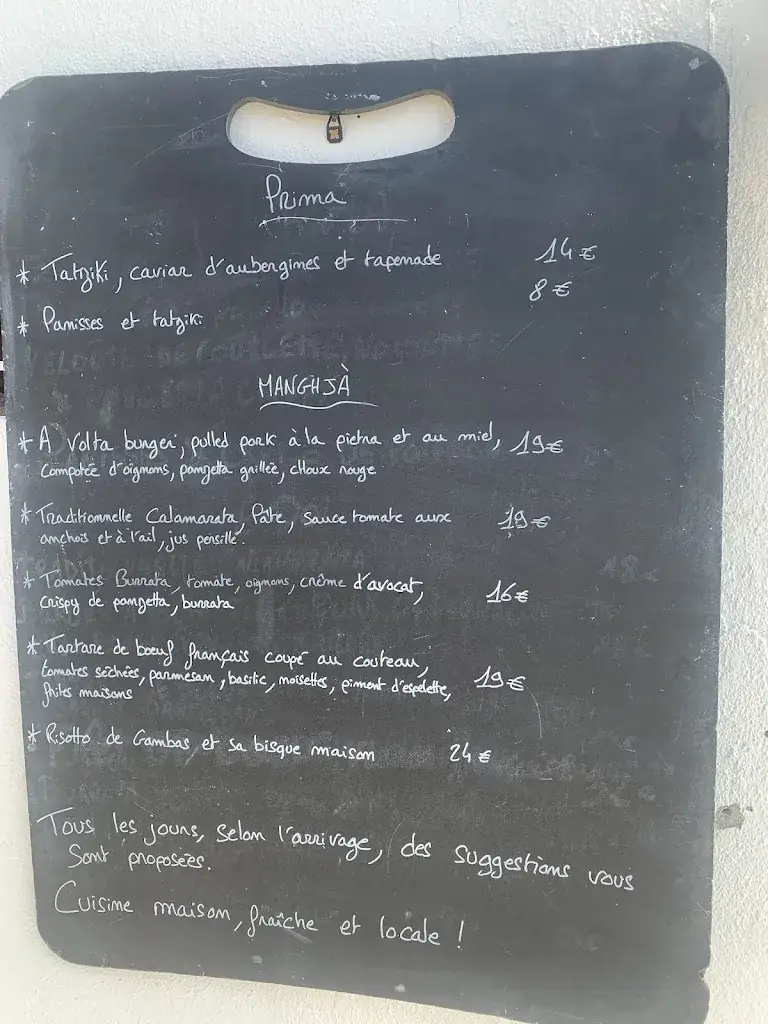 Prima
* Tatziki, caviar d'aubergines et tapenade 14€
8€
* Panisses et tatziki
MANGHJÀ
* A Volta burger, pulled pork à la pietra et au miel, 19€
compotée d'oignons, panzetta grillée, choux rouge
* Traditionnelle Calamarata, Pâte, sauce tomate aux 19€
anchois et à l'ail, jus persillé.
* Tomates Burrata, tomate, oignons, crème d'avocat, 16€
crispy de panzetta, burrata
* Tartare de boeuf français coupé au couteau,
tomates séchées, parmesan, basilic, noisettes, piment d'espelette, 19€
frites maisons
* Risotto de Gambas et sa bisque maison 24€
Tous les jours, selon l'arrivage, des suggestions vous
sont proposées.
Cuisine maison, fraîche et locale !